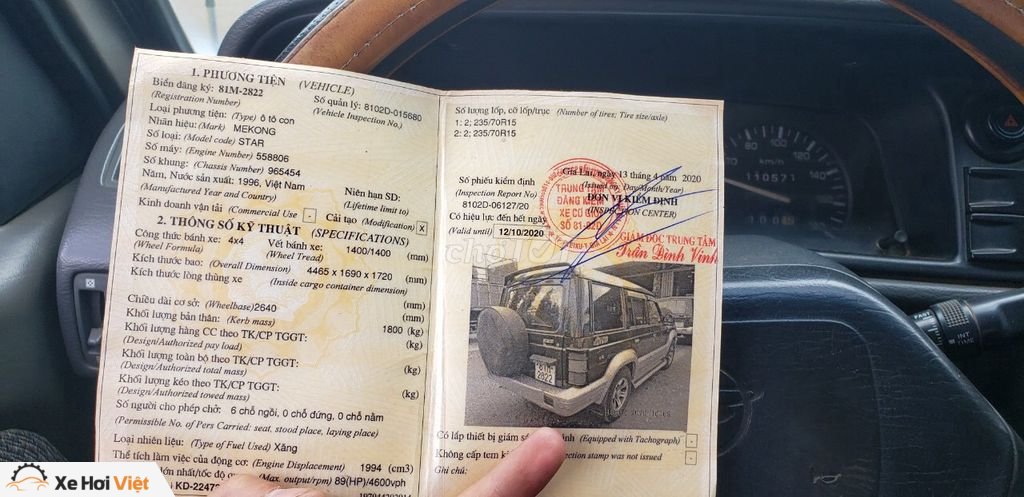 1. PHƯƠNG TIỆN (VEHICLE)
Biển đăng ký: 81M-2822 Số quản lý: 8102D-015680
(Registration Number) (Vehicle Inspection No.)
Loại phương tiện: (Type) ô tô con
Nhãn hiệu: (Mark) MEKONG
Số loại: (Model code) STAR
Số máy: (Engine Number) 558806
Số khung: (Chassis Number) 965454
Năm, Nước sản xuất: 1996, Việt Nam Niên hạn SD:
(Manufactured Year and Country) (Lifetime limit to)
Kinh doanh vận tải (Commercial Use - Cải tạo (Modification) X
2. THÔNG SỐ KỸ THUẬT (SPECIFICATIONS)
Công thức bánh xe: 4x4 Vết bánh xe: 1400/1400 (mm)
(Wheel Formula) (Wheel Tread)
Kích thước bao: (Overall Dimension) 4465 x 1690 x 1720 (mm)
Kích thước lòng thùng xe (Inside cargo container dimension)
(mm)
Chiều dài cơ sở: (Wheelbase) 2640 (mm)
Khối lượng bản thân: (Kerb mass) 1800 (kg)
Khối lượng hàng CC theo TK/CP TGGT: (kg)
(Design/Authorized pay load)
Khối lượng toàn bộ theo TK/CP TGGT: (kg)
(Design/Authorized total mass)
Khối lượng kéo theo TK/CP TGGT: (kg)
(Design/Authorized towed mass)
Số người cho phép chở: 6 chỗ ngồi, 0 chỗ đứng, 0 chỗ nằm
(Permissible No. of Pers Carried: seat, stood place, laying place)
Loại nhiên liệu: (Type of Fuel Used) Xăng
Thể tích làm việc của động cơ: (Engine Displacement) 1994 (cm3)
lớn nhất/tốc độ (Max. output/rpm) 89(HP)/4600vph
KD-2247
Số lượng lốp, cỡ lốp/trục (Number of tires; Tire size/axle)
1: 2; 235/70R15
2: 2; 235/70R15
Gia Lai, ngày 13 tháng 4 năm 2020
Số phiếu kiểm định (Issued on: Day/Month/Year)
(Inspection Report No) ĐƠN VỊ KIỂM ĐỊNH
8102D-06127/20 (INSPECTION CENTER)
Có hiệu lực đến hết ngày
Valid until 12/10/2020
TRUNG TÂM
ĐĂNG KIỂM
XE CƠ GIỚI
SỐ 81-02D
GIÁM ĐỐC TRUNG TÂM
Trần Đình Vinh
81M
2822
Có lắp thiết bị giám (Equipped with Tachograph) -
Không cấp tem stamp was not issued -
Ghi chú:
chợTỐT
110521
80
km/h
120
140
INT
TIME
Xe Hơi Việt